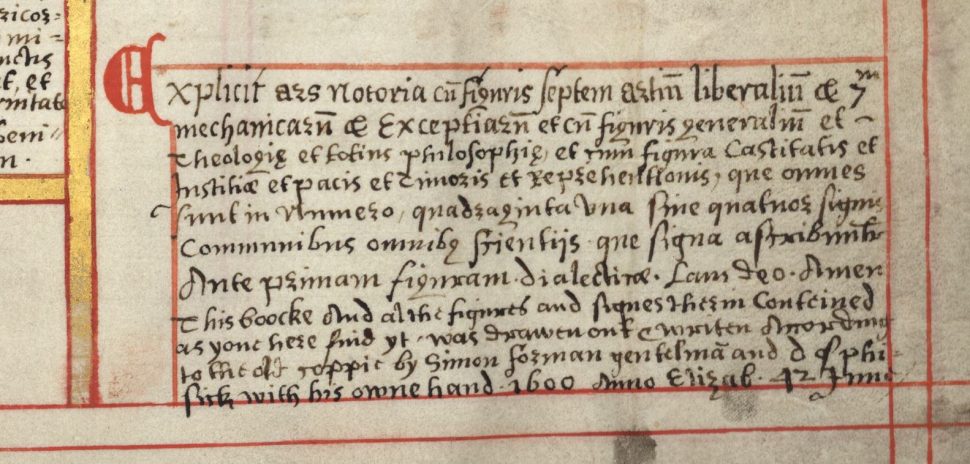 ricos-
mi=
nctis
t, et
rnitate
beni-
n.
Explicit ars Notoria cū figuris septem artiū liberaliū & 7m
mechanicarū & Exceptiarū et cū figuris generaliū et
Theologię et totius philosophię, et cum figura Castitatis et
Iustitiæ et pacis et Timoris et Reprehentionis, que omnes
sunt in Numero, quadraginta una sine quatuor signis
Communibus omnibꝯ scientijs que signa ascribuntr
Ante primam figuram dialecticæ. Laus deo. Amen
This boocke And al the figures and signes therin Conteined
as yone here find yt. was drawen out & writen According
to the old coppie by Simon forman gentelmā and d of phi-
sick with his owne hand. 1600 Anno Elizab. 42 June